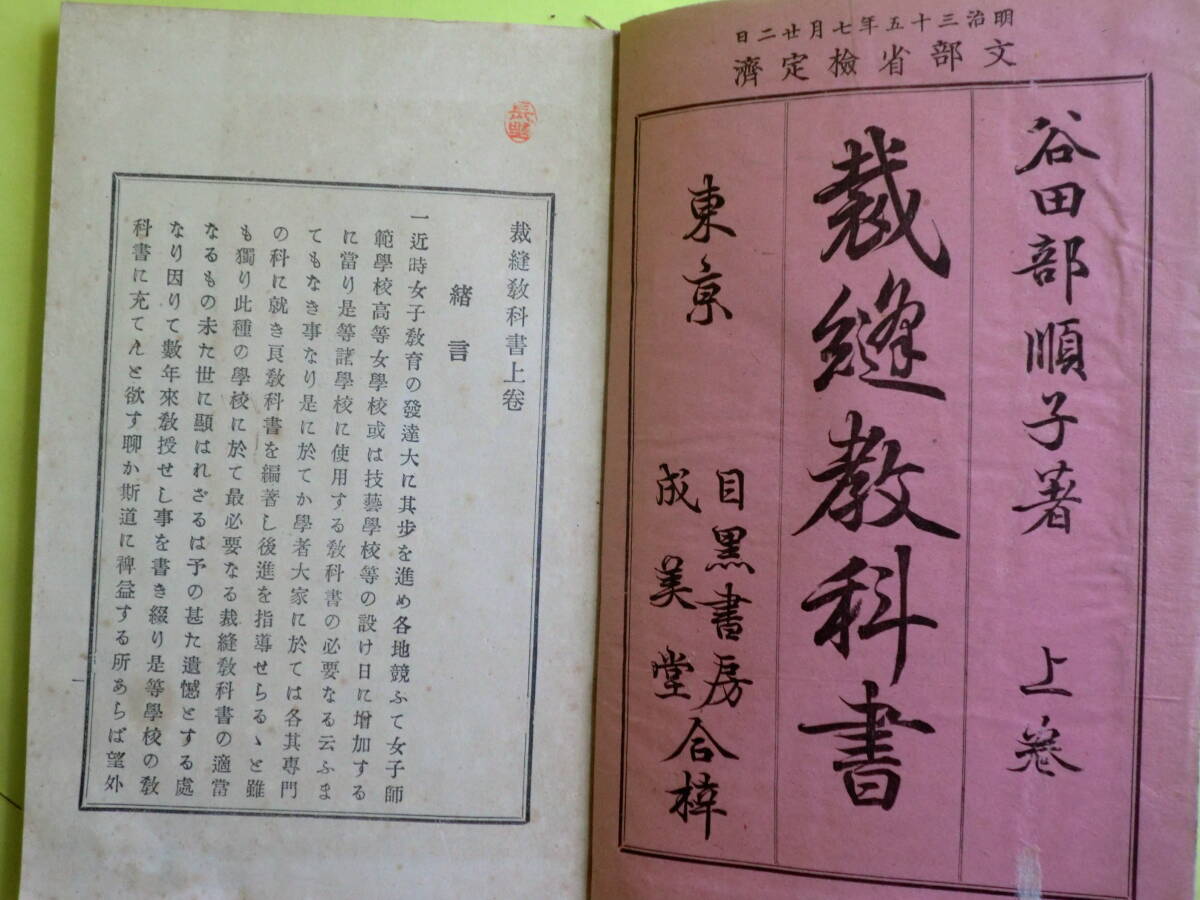 明治三十五年七月廿二日
文部省檢定濟
谷田部順子著 上卷
裁縫教科書
東京 目黒書房
成美堂 合梓
長野
裁縫教科書上卷
緒言
一近時女子教育の發達大に其步を進め各地競ふて女子師
範學校高等女學校或は技藝學校等の設け日に增加する
に當り是等諸學校に使用する教科書の必要なる云ふま
てもなき事なり是に於てか學者大家に於ては各其專門
の科に就き良教科書を編著し後進を指導せらるゝと雖
も獨り此種の學校に於て最必要なる裁縫教科書の適當
なるもの未た世に顯はれざるは予の甚た遺憾とする處
なり因りて數年來教授せし事を書き綴り是等學校の教
科書に充てんと欲す聊か斯道に裨益する所あらば望外
一